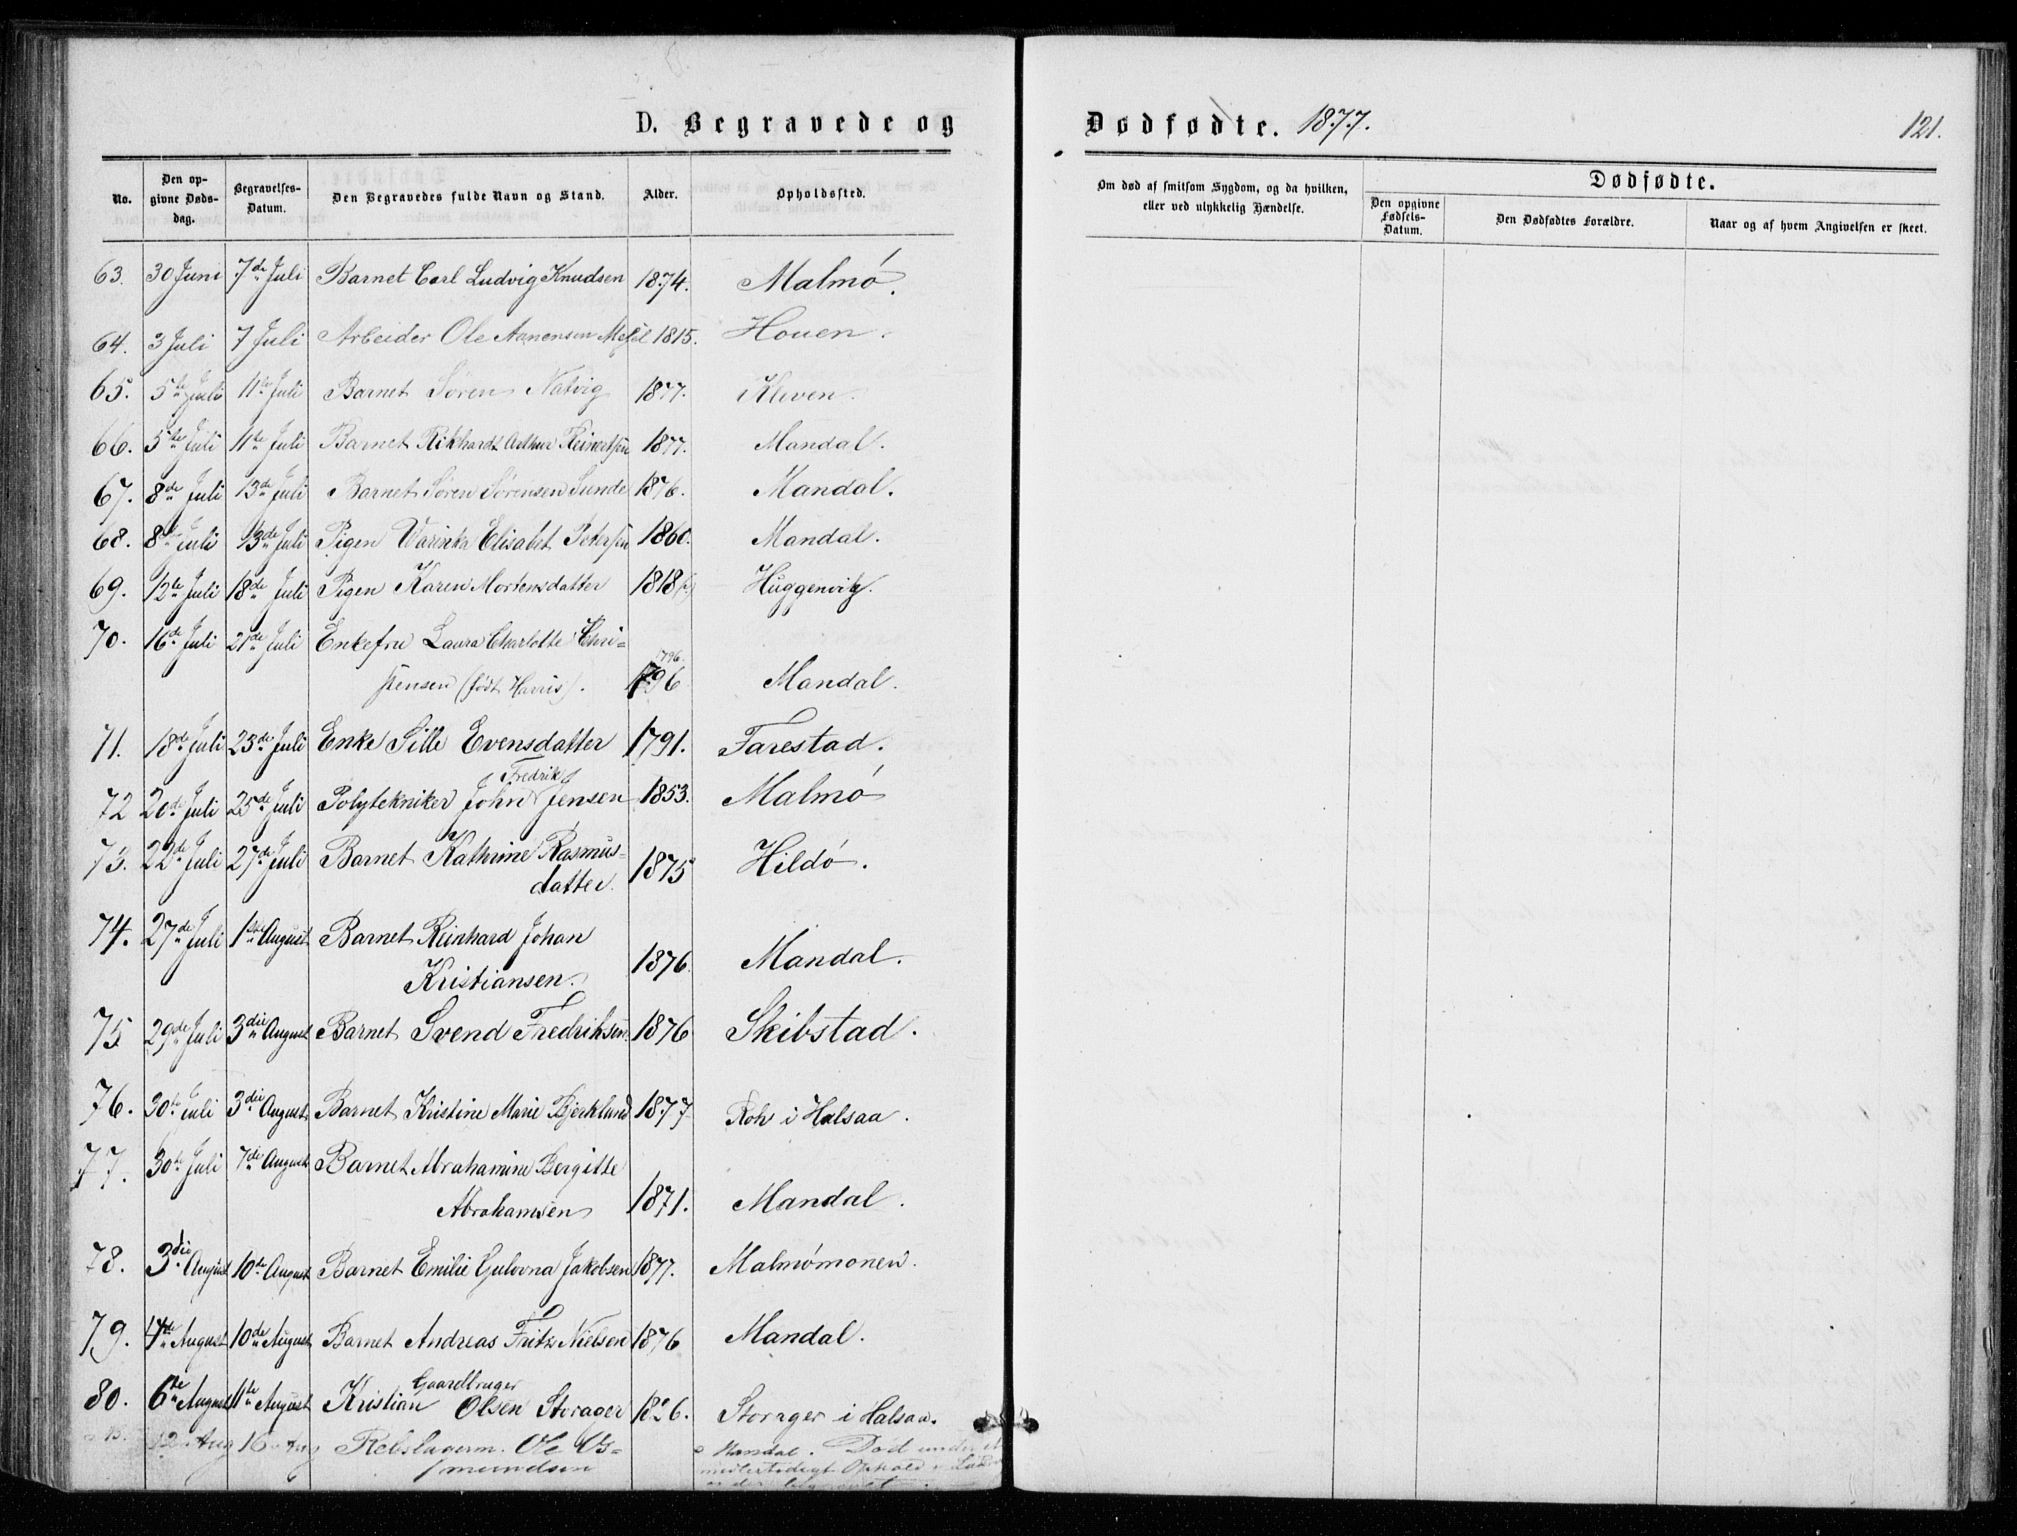 D. Begravede og
Dødfødte. 1877.
121.
No.
Den opgivne Døds-dag.
Begravelses-Datum.
Den Begravedes fulde Navn og Stand.
Alder.
Opholdssted.
Om død af smitsom Sygdom, og da hvilken, eller ved ulykkelig Hændelse.
Dødfødte.
Den opgivne Fødsels-Datum.
Den Dødfødtes Forældre.
Naar og af hvem Angivelsen er skeet.
63. 30 Juni 7de Juli Barnet Carl Ludvig Knudsen 1874. Malmø.
64. 3 Juli 7 Juli Arbeider Ole Aanensen 1815. Houen.
65. 5te Juli 11te Juli Barnet Søren Natvig 1877. Kleven.
66. 5te Juli 11te Juli Barnet Rikhardt Arthur Reinertsen 1877. Mandal.
67. 8de Juli 13de Juli Barnet Søren Sørensen Sunde 1876. Mandal.
68. 8de Juli 13de Juli Pigen Elisabet Petersen 1860. Mandal.
69. 12te Juli 18de Juli Pigen Karen Mortensdatter 1818 Huggenvig.
70. 16de Juli 21de Juli Enkefru Laura Charlotte Chri=
1796.
stensen (født Harris). 1796 Mandal.
71. 18de Juli 23de Juli Enke Sille Evensdatter 1791. Farestad.
Fredrik
72 20de Juli 25de Juli Polytekniker John Jensen 1853. Malmø
73. 22de Juli 27de Juli Barnet Kathrine Rasmus-
datter. 1875 Hildø.
74. 27de Juli 1ste August Barnet Reinhard Johan
Kristiansen. 1876. Mandal.
75 29de Juli 3die August Barnet Svend Fredriksen. 1876 Skibstad.
76. 30te Juli 3die August Barnet Kristine Marie Bjerklund 1877 Roh i Halsaa.
77. 30te Juli 7de August Barnet Abrahamine Bergitte
Abrahamsen 1871. Mandal.
78. 3die August 10de August Barnet Emilie Gulovna Jakobsen 1877. Malmømonen.
79. 4de August 10de August Barnet Andreas Fritz Nielsen 1876 Mandal.
Gaardbruger
80. 6te August 11te August Kristian Olsen Storager 1826. Storager i Halsaa.
12 Aug 16 Aug Rebslagerm. Ole Os= Mandal. Død under
mundsen midlertidigt Ophold i